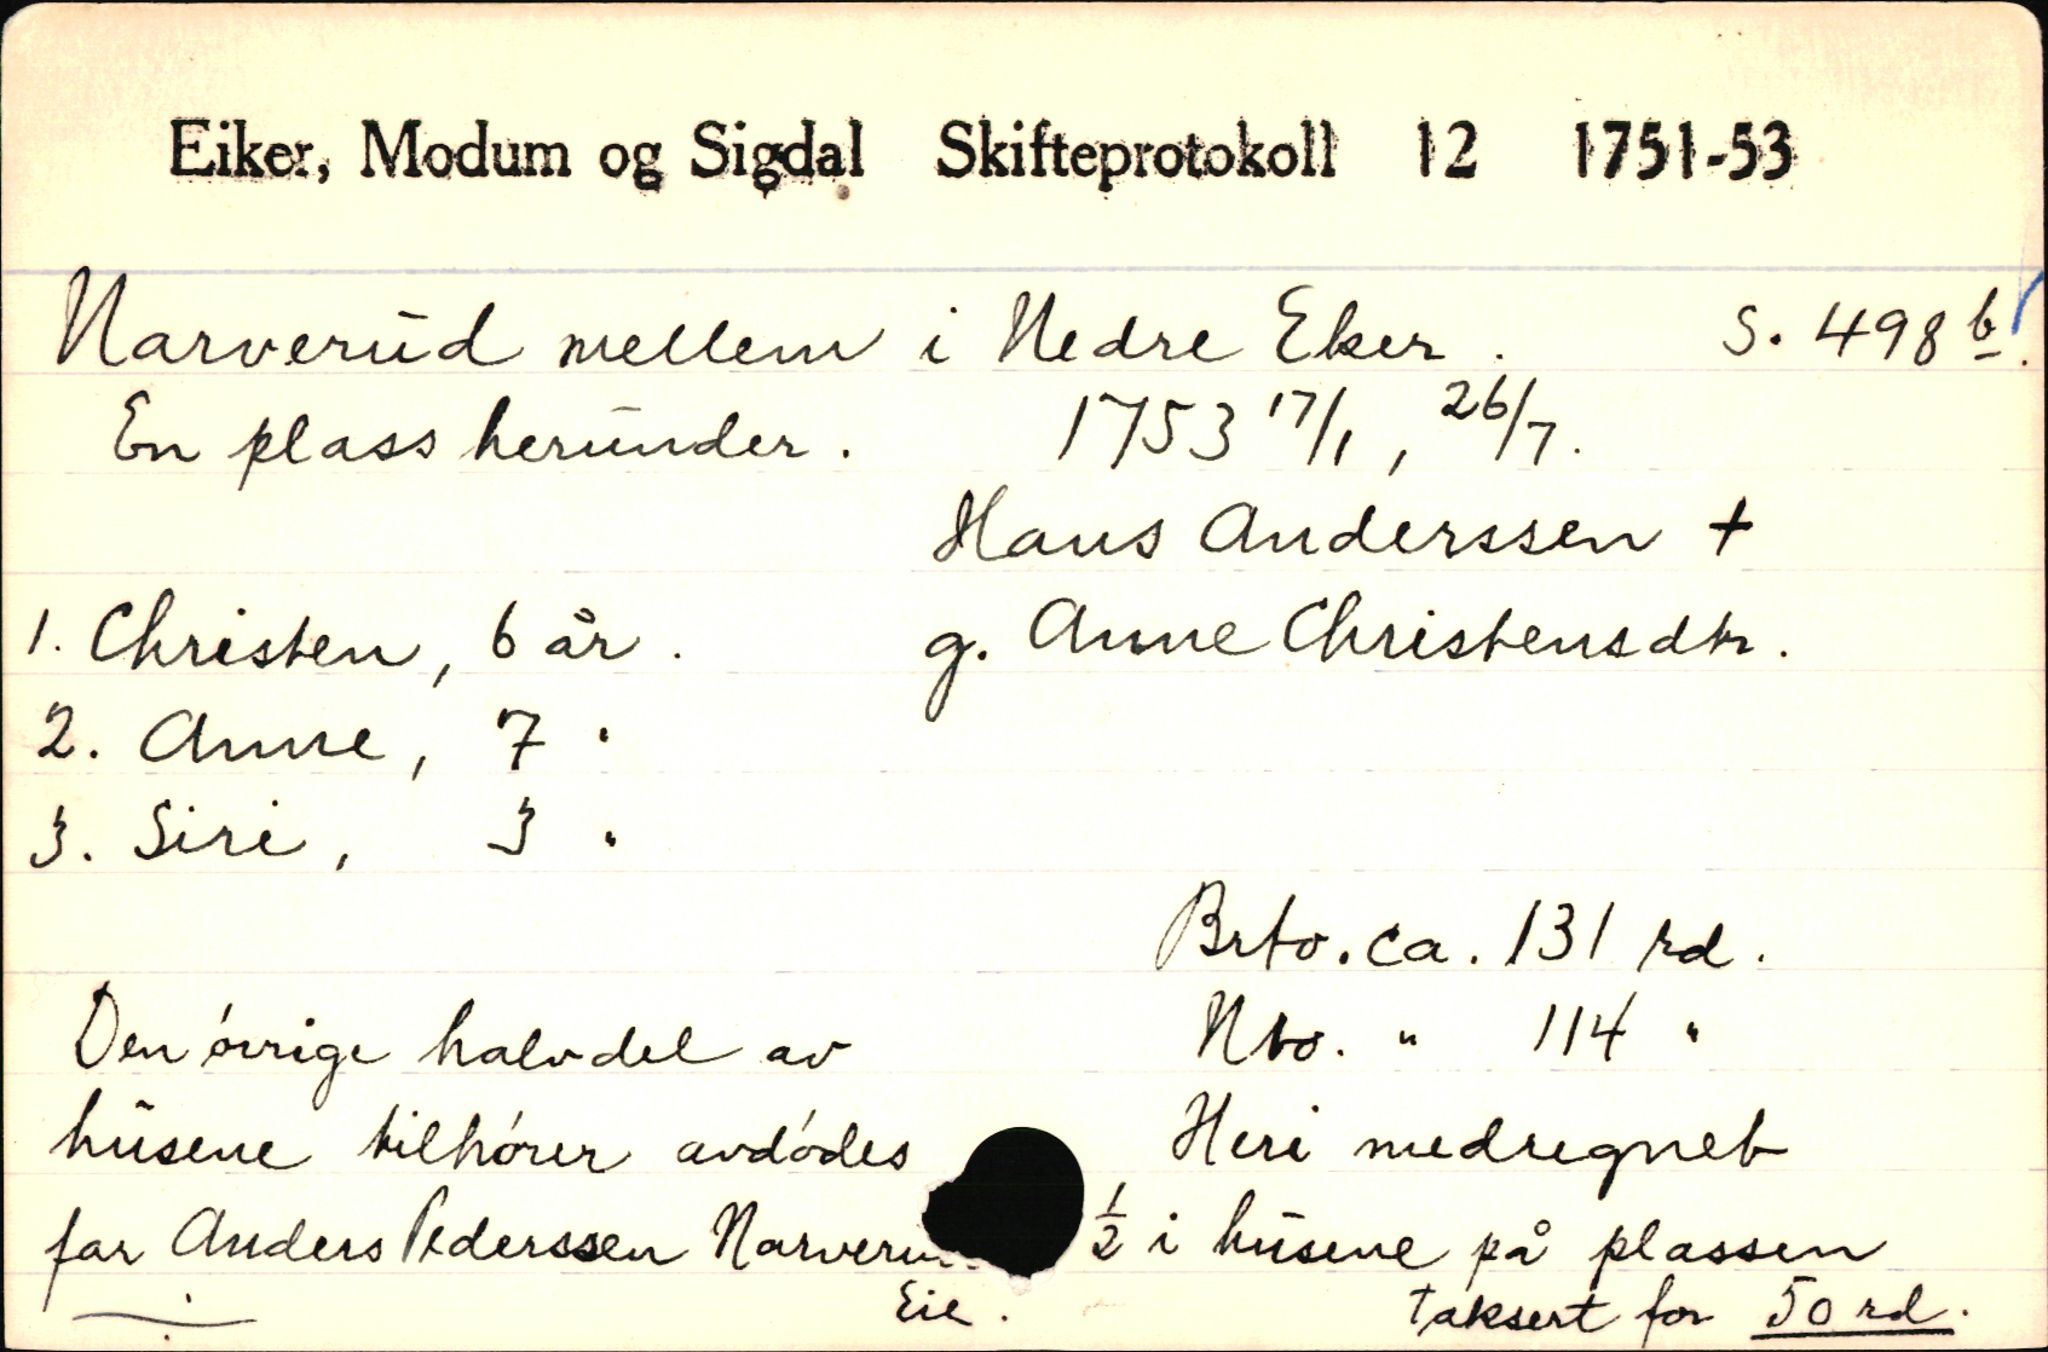 Eiker, Modum og Sigdal Skifteprotokoll 12 1751-53
Narverud mellem i Nedre Eker. S. 498 b.
En plass herunder. 1753 17/1, 26/7.
Hans Anderssen +
1. Christen, 6 år. g. Anne Christensdtr.
2. Anne, 7 "
3. Siri, 3 "
Brto. ca. 131 rd.
Den øvrige halvdel av Nto. " 114 "
husene tilhører avdødes Heri medregnet
far Anders Pederssen Narveru ½ i husene på plassen
Eie. taksert for 50 rd.